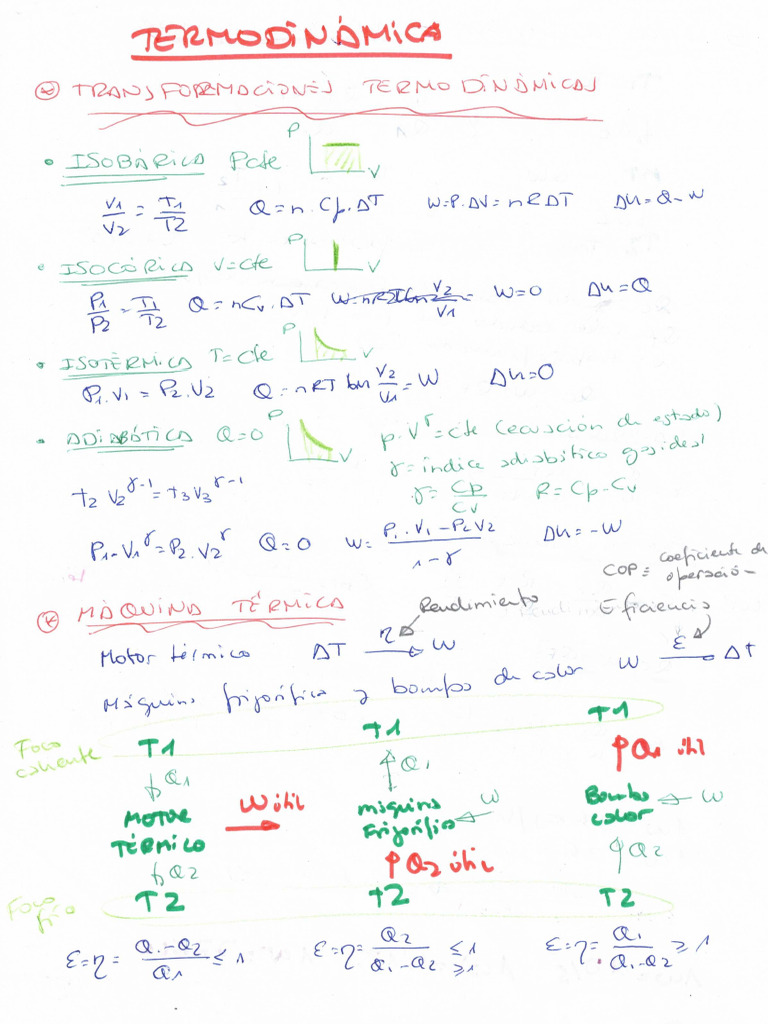 TERMODINÁMICA
* TRANSFORMACIONES TERMODINÁMICAS
• ISOBÁRICA Pcte P V
V1/V2 = T1/T2 Q=n.Cp.ΔT W=P.ΔV=nRΔT Δu=Q-W
• ISOCÓRICA V=cte P V
P1/P2 = T1/T2 Q=nCv.ΔT W=0 Δu=Q
• ISOTÉRMICA T=cte P V
P1.V1=P2.V2 Q=nRT ln V2/V1=W Δu=0
• ADIABÓTICA Q=0 P V
p.V^γ=cte (ecuación de estado)
γ=índice adiabático gas ideal
γ=Cp/Cv R=Cp-Cv
T2 V2^γ-1=T3V3^γ-1
P1.V1^γ=P2.V2^γ Q=0 W=P1.V1-P2V2/1-γ Δu=-W
COP= coeficiente de operación
* MÁQUINA TÉRMICA Rendimiento Eficiencia
Motor térmico ΔT η→ W
Máquina frigorífica y bomba de calor W ε→ Δt
Foco caliente T1 T1 T1
Q1 Q1 Q1 útil
MOTOR TÉRMICO W útil máquina frigorífica W Bomba calor W
Q2 Q2 útil Q2
Foco frío T2 T2 T2
ε=η=Q1-Q2/Q1≤1 ε=η=Q2/Q1-Q2 ≤1 ≥1 ε=η=Q1/Q1-Q2≥1